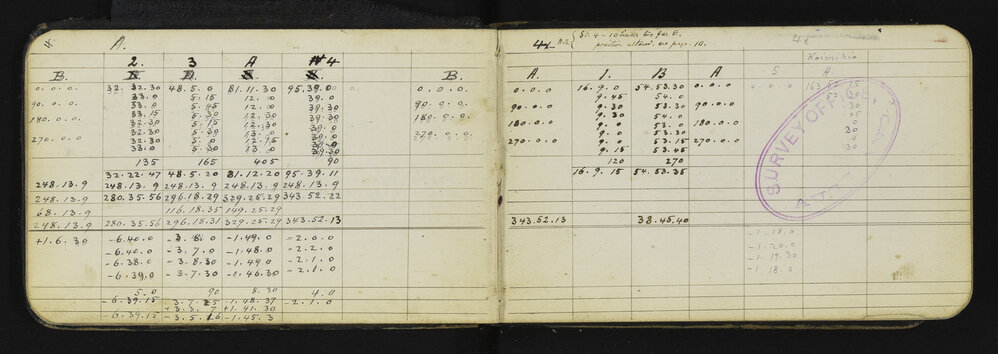 4 A.
2. 3 A #4
B. N N S S B.
0.0.0 32. 32.30 48.5.0 81.11.30 95.39.0 0.0.0
33.0 5.15 12.0 39.0
90.0.0 33.0 5.45 12.0 39.30 90.0.0
33.15 5.30 12.30 39.30
180.0.0 32.30 5.30 12.0 39.0 180.0.0
32.30 5.0 12.30 39.0
270.0.0 32.30 5.30 12.15 39.0 270.0.0
33.0 5.30 13.0 39.30
135 165 405 90
32.22.47 48.5.20 81.12.20 95.39.11
248.13.9 248.13.9 248.13.9 248.13.9 248.13.9
248.13.9 280.35.56 296.18.29 329.25.29 343.52.22
68.13.9 116.18.35 149.25.29
248.13.9 280.35.56 296.18.31 329.25.29 343.52.13
+1.6.30 -6.40.0 -3.8.0 -1.49.0 -2.0.0
-6.40.0 -3.7.0 -1.48.0 -2.2.0
-6.38.0 -3.8.30 -1.49.0 -2.1.0
-6.39.0 -3.7.30 -1.46.30 -2.1.0
5.0 90 8.30 4.0
-6.39.15 -3.7.25 -1.48.37 -2.1.0
+3.3.7 +1.41.30
-6.39.15 -3.5.16 -1.45.3
4x Note St. 4 - 10 links too far E.
position altered. see page 10.
4x
Kaimitia
A. 1. B A 5 A
0.0.0 16.9.0 54.53.30 0.0.0 163.52.15
9.45 54.0 53.30
90.0.0 9.30 53.30 90.0.0 30
9.0 54.0 45
180.0.0 9.0 53.30 180.0.0
9.0 53.30 30
270.0.0 9.0 53.15 270.0.0
9.15 53.45 30
120 270
16.9.15 54.53.35
343.52.13 38.45.40
-1.18.0
-1.20.0
-1.19.30
-1.18.0
SURVEY OFFICE